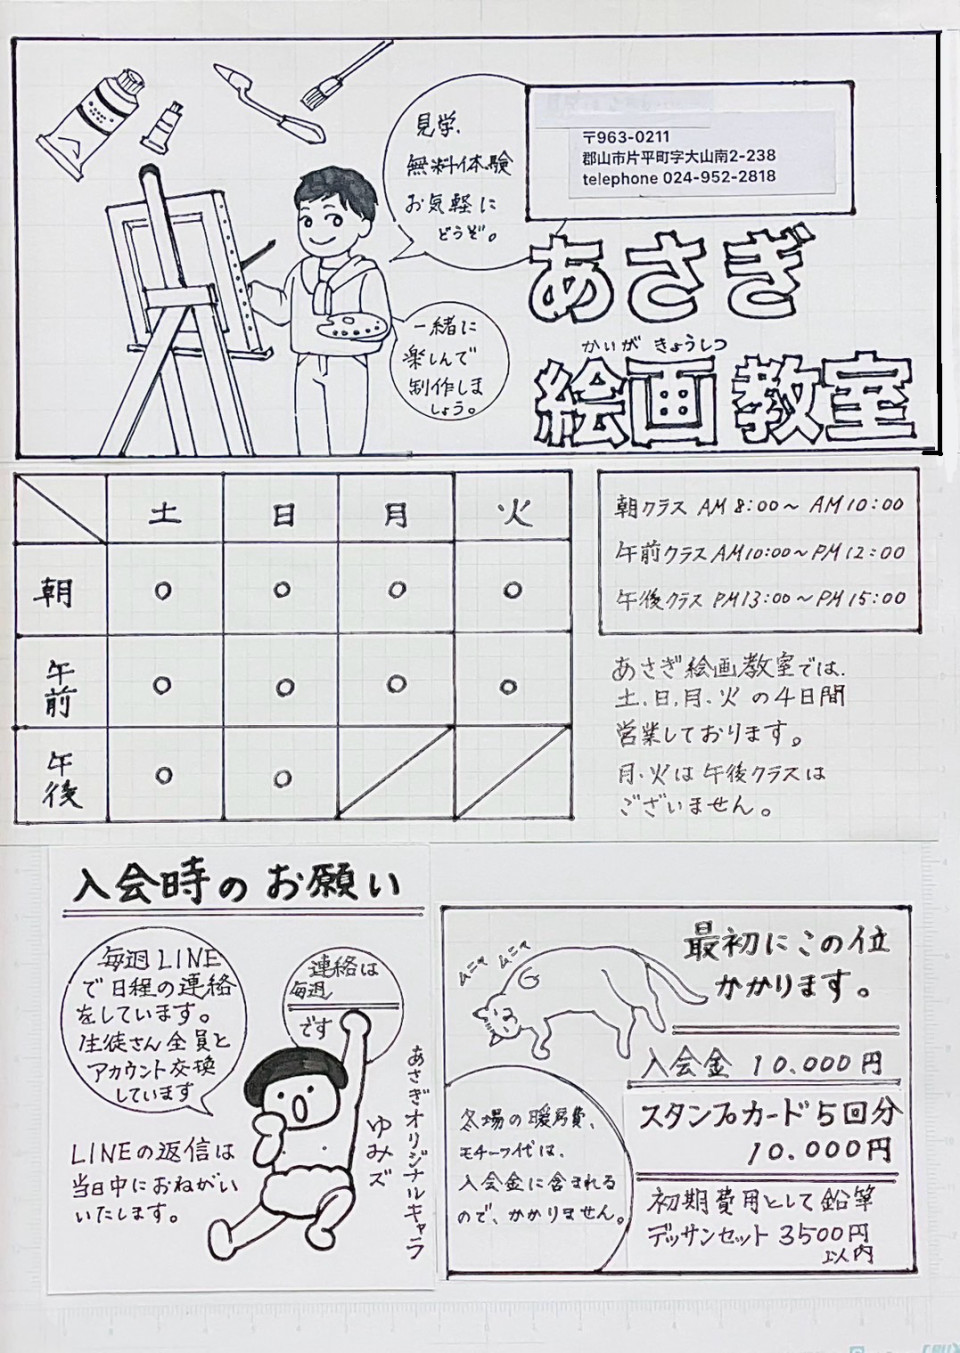 見学、
無料体験
お気軽に
どうぞ。
〒963-0211
郡山市片平町字大山南2-238
telephone 024-952-2818
あさぎ
かいが きょうしつ
絵画教室
一緒に
楽しんで
制作しま
しょう。
土 日 月 火
朝 ○ ○ ○ ○
午前 ○ ○ ○ ○
午後 ○ ○
朝クラス AM 8:00〜 AM10:00
午前クラス AM10:00〜PM12:00
午後クラス PM13:00〜PM15:00
あさぎ絵画教室では、
土、日、月、火 の4日間
営業しております。
月、火は 午後クラスは
ございません。
入会時のお願い
毎週LINE
で日程の連絡
をしています。
生徒さん全員と
アカウント交換
しています
連絡は
毎週
です
あさぎオリジナルキャラ
ゆみズ
LINEの返信は
当日中におねがい
いたします。
ムニャ ムニャ
最初にこの位
かかります。
入会金 10.000円
スタンプカード5回分
10.000円
初期費用として鉛筆
デッサンセット 3500円
以内
冬場の暖房費、
モチーフ代は、
入会金に含まれる
ので、かかりません。